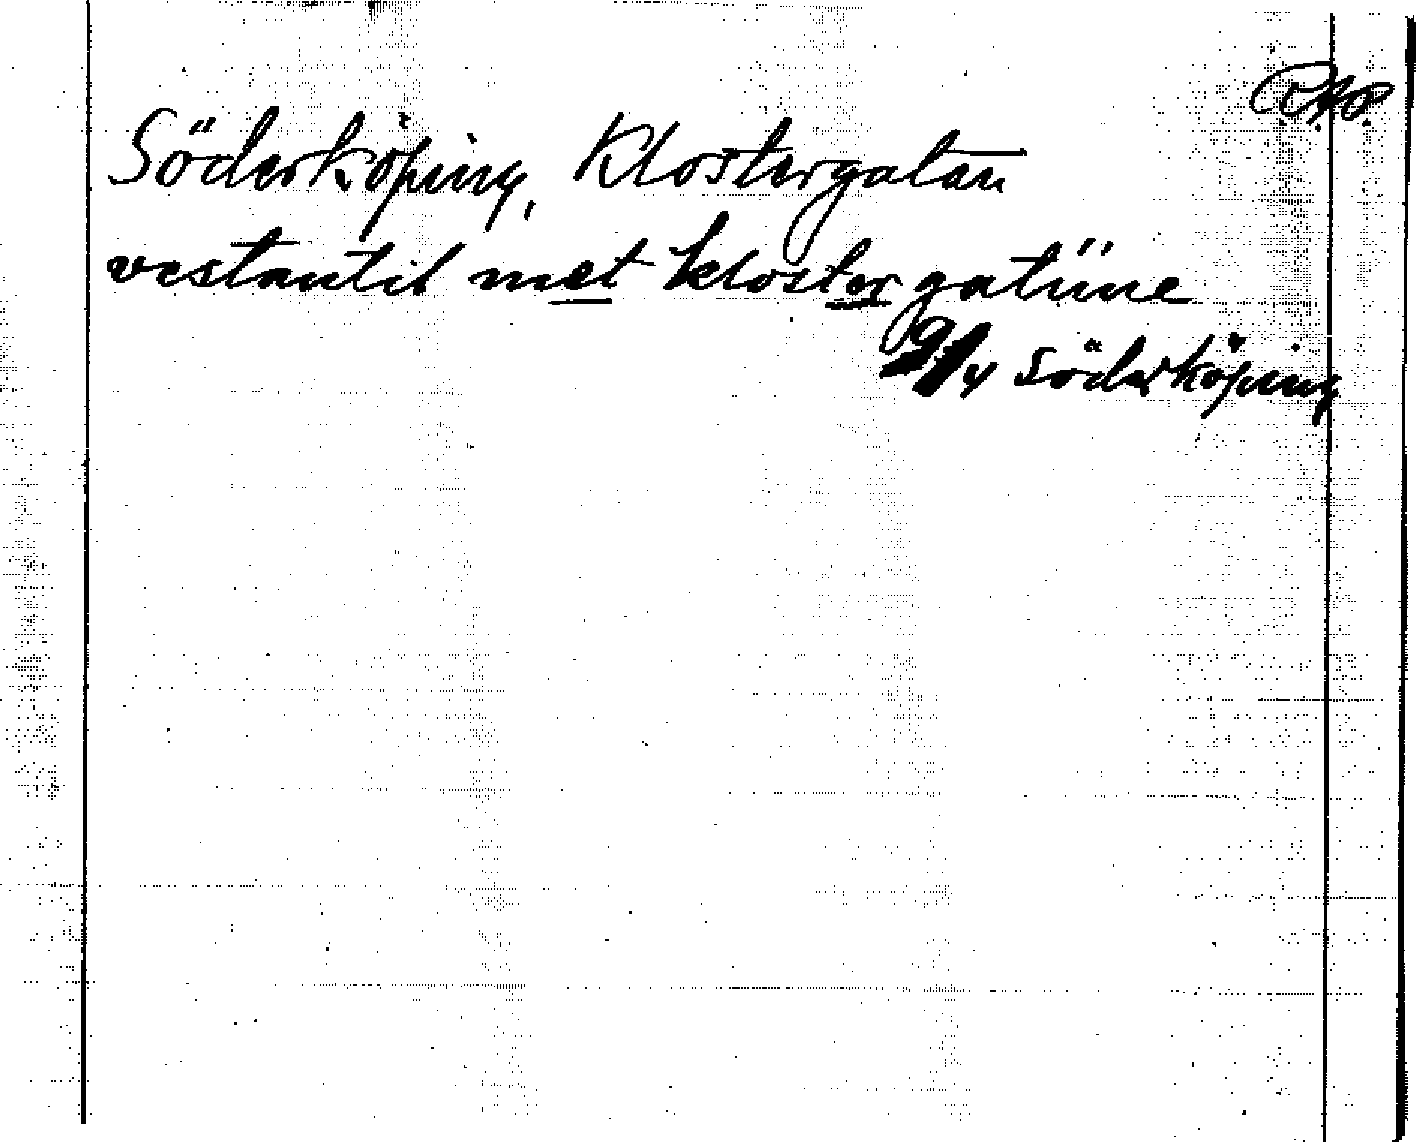 R.A.P.
Söderköping, Klostergatan
vestantil met klostergatüne
Söderköping